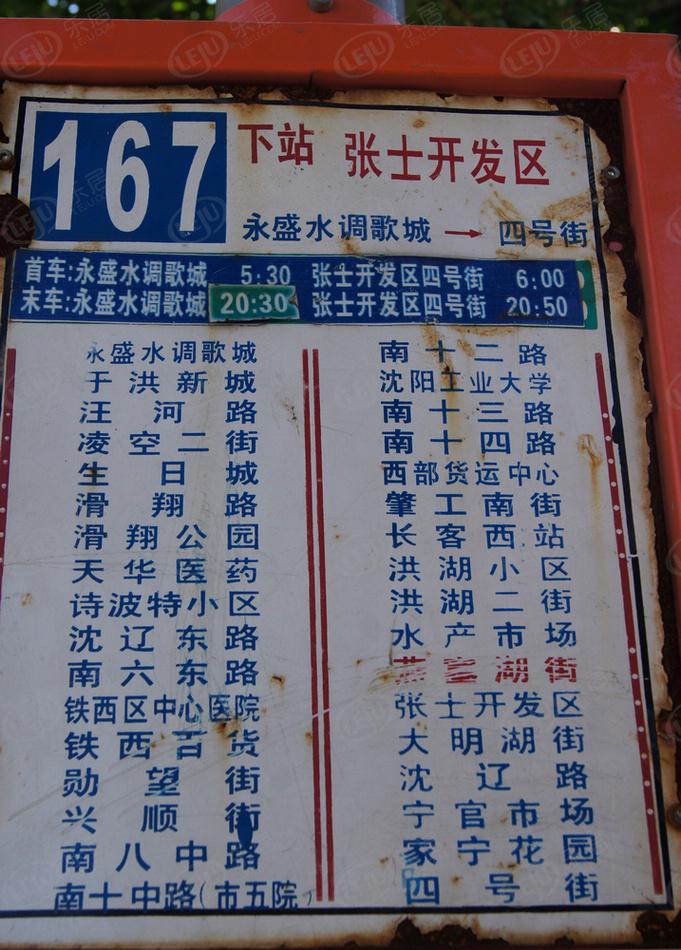 167
下站 张士开发区
永盛水调歌城 → 四号街
首车:永盛水调歌城 5:30 张士开发区四号街 6:00
末车:永盛水调歌城 20:30 张士开发区四号街 20:50
永盛水调歌城
于洪新城
汪河路
凌空二街
生日城
滑翔路
滑翔公园
天华医药
诗波特小区
沈辽东路
南六东路
铁西区中心医院
铁西百货
勋望街
兴顺街
南八中路
南十中路(市五院)
南十二路
沈阳工业大学
南十三路
南十四路
西部货运中心
肇工南街
长客西站
洪湖小区
洪湖二街
水产市场
燕塞湖街
张士开发区
大明湖街
沈辽路
宁官市场
家宁花园
四号街